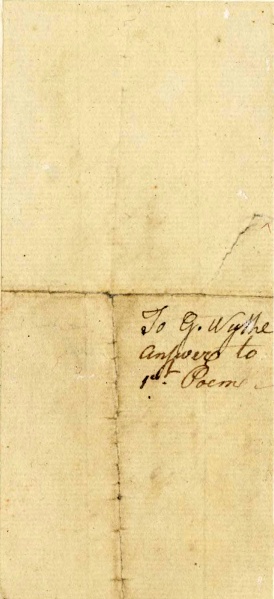 To G. Wythe
answer to
1st. Poem